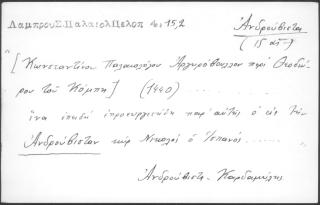 Λαμπρου Σ. Παλαιολ Πελοπ 4, 15,2
Ἀνδρούβιστα
(15 αἰ)
"[Κωνσταντίνου Παλαιολόγου Ἀργυρόβουλλον περὶ Θεοδώ-
ρου τοῦ Κόμπη] (1440) ........
ἵνα ἐπειδὴ παρ' αὐτῆς ὁ εἰς τὴν
Ἀνδρούβισταν κὺρ Νικολαὶ ὁ Ἱσπανός ......
........ "
Ἀνδρούβιστα - Καρδαμύλης